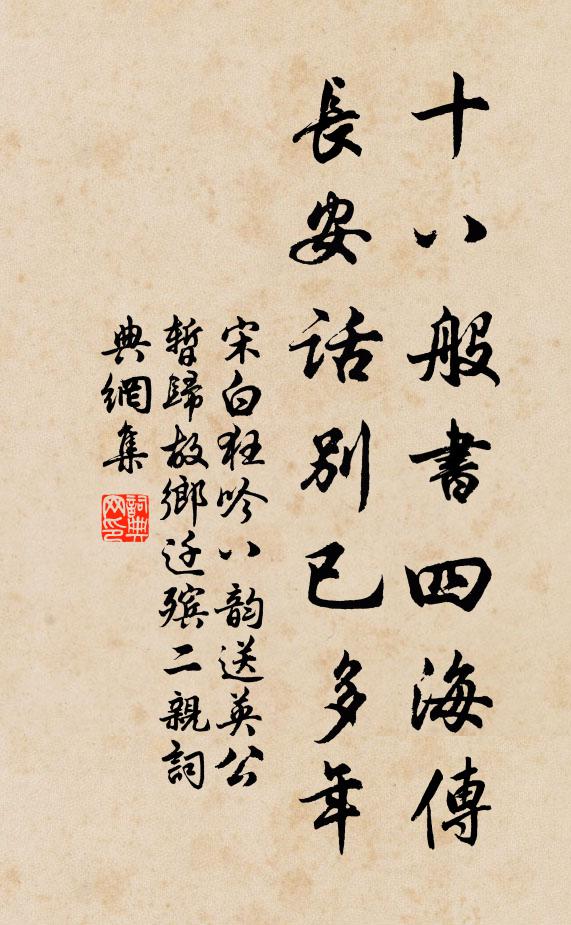 十八般書四海傳
長安話別已多年
宋白狂吟八韵送英公
暫歸故鄉迁殯二親詞
典網集
詞典网印